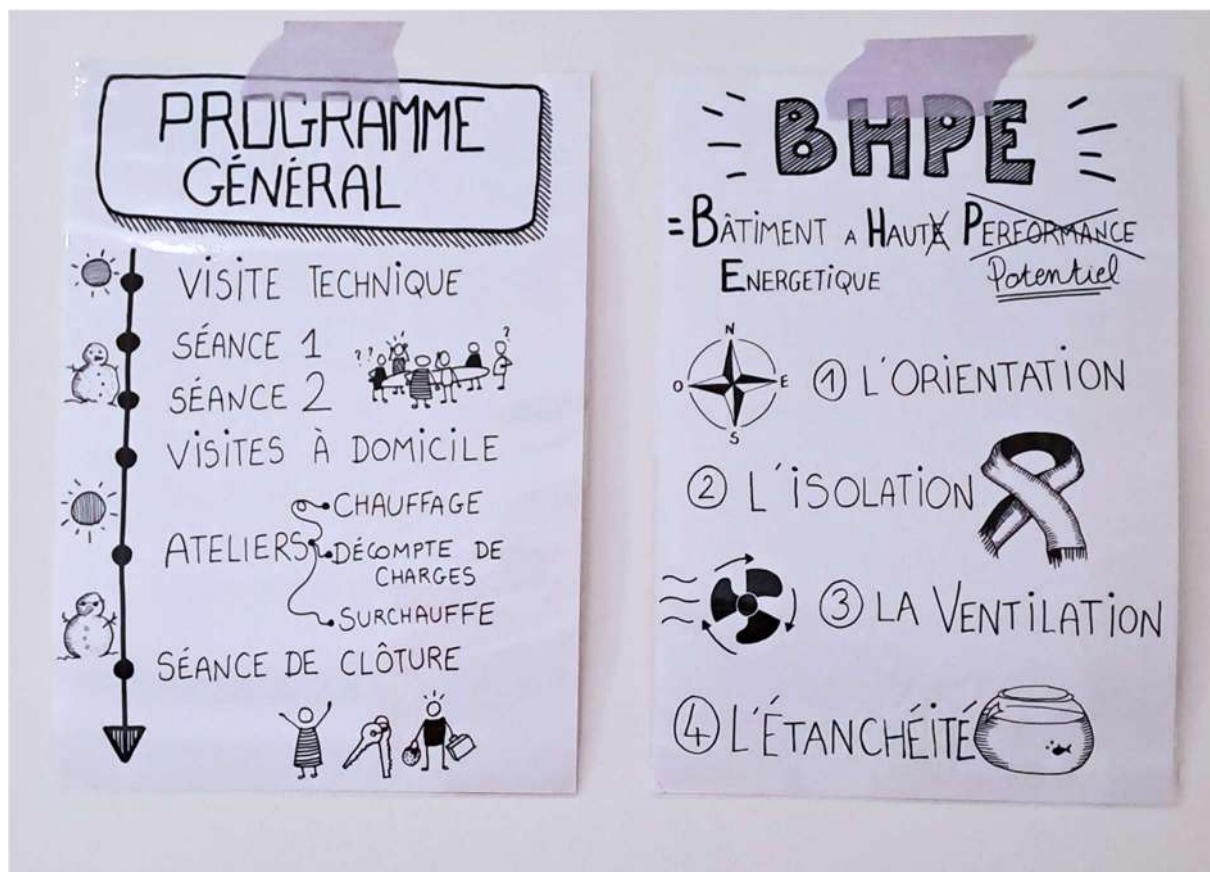 PROGRAMME
GÉNÉRAL
VISITE TECHNIQUE
SÉANCE 1
SÉANCE 2
? ? ?
VISITES À DOMICILE
CHAUFFAGE
ATELIERS
DÉCOMPTE DE
CHARGES
SURCHAUFFE
SÉANCE DE CLÔTURE
BHPE
= BÂTIMENT A HAUTE PERFORMANCE
ENERGETIQUE Potentiel
N
O E
S
① L'ORIENTATION
② L'ISOLATION
③ LA VENTILATION
④ L'ÉTANCHÉITÉ